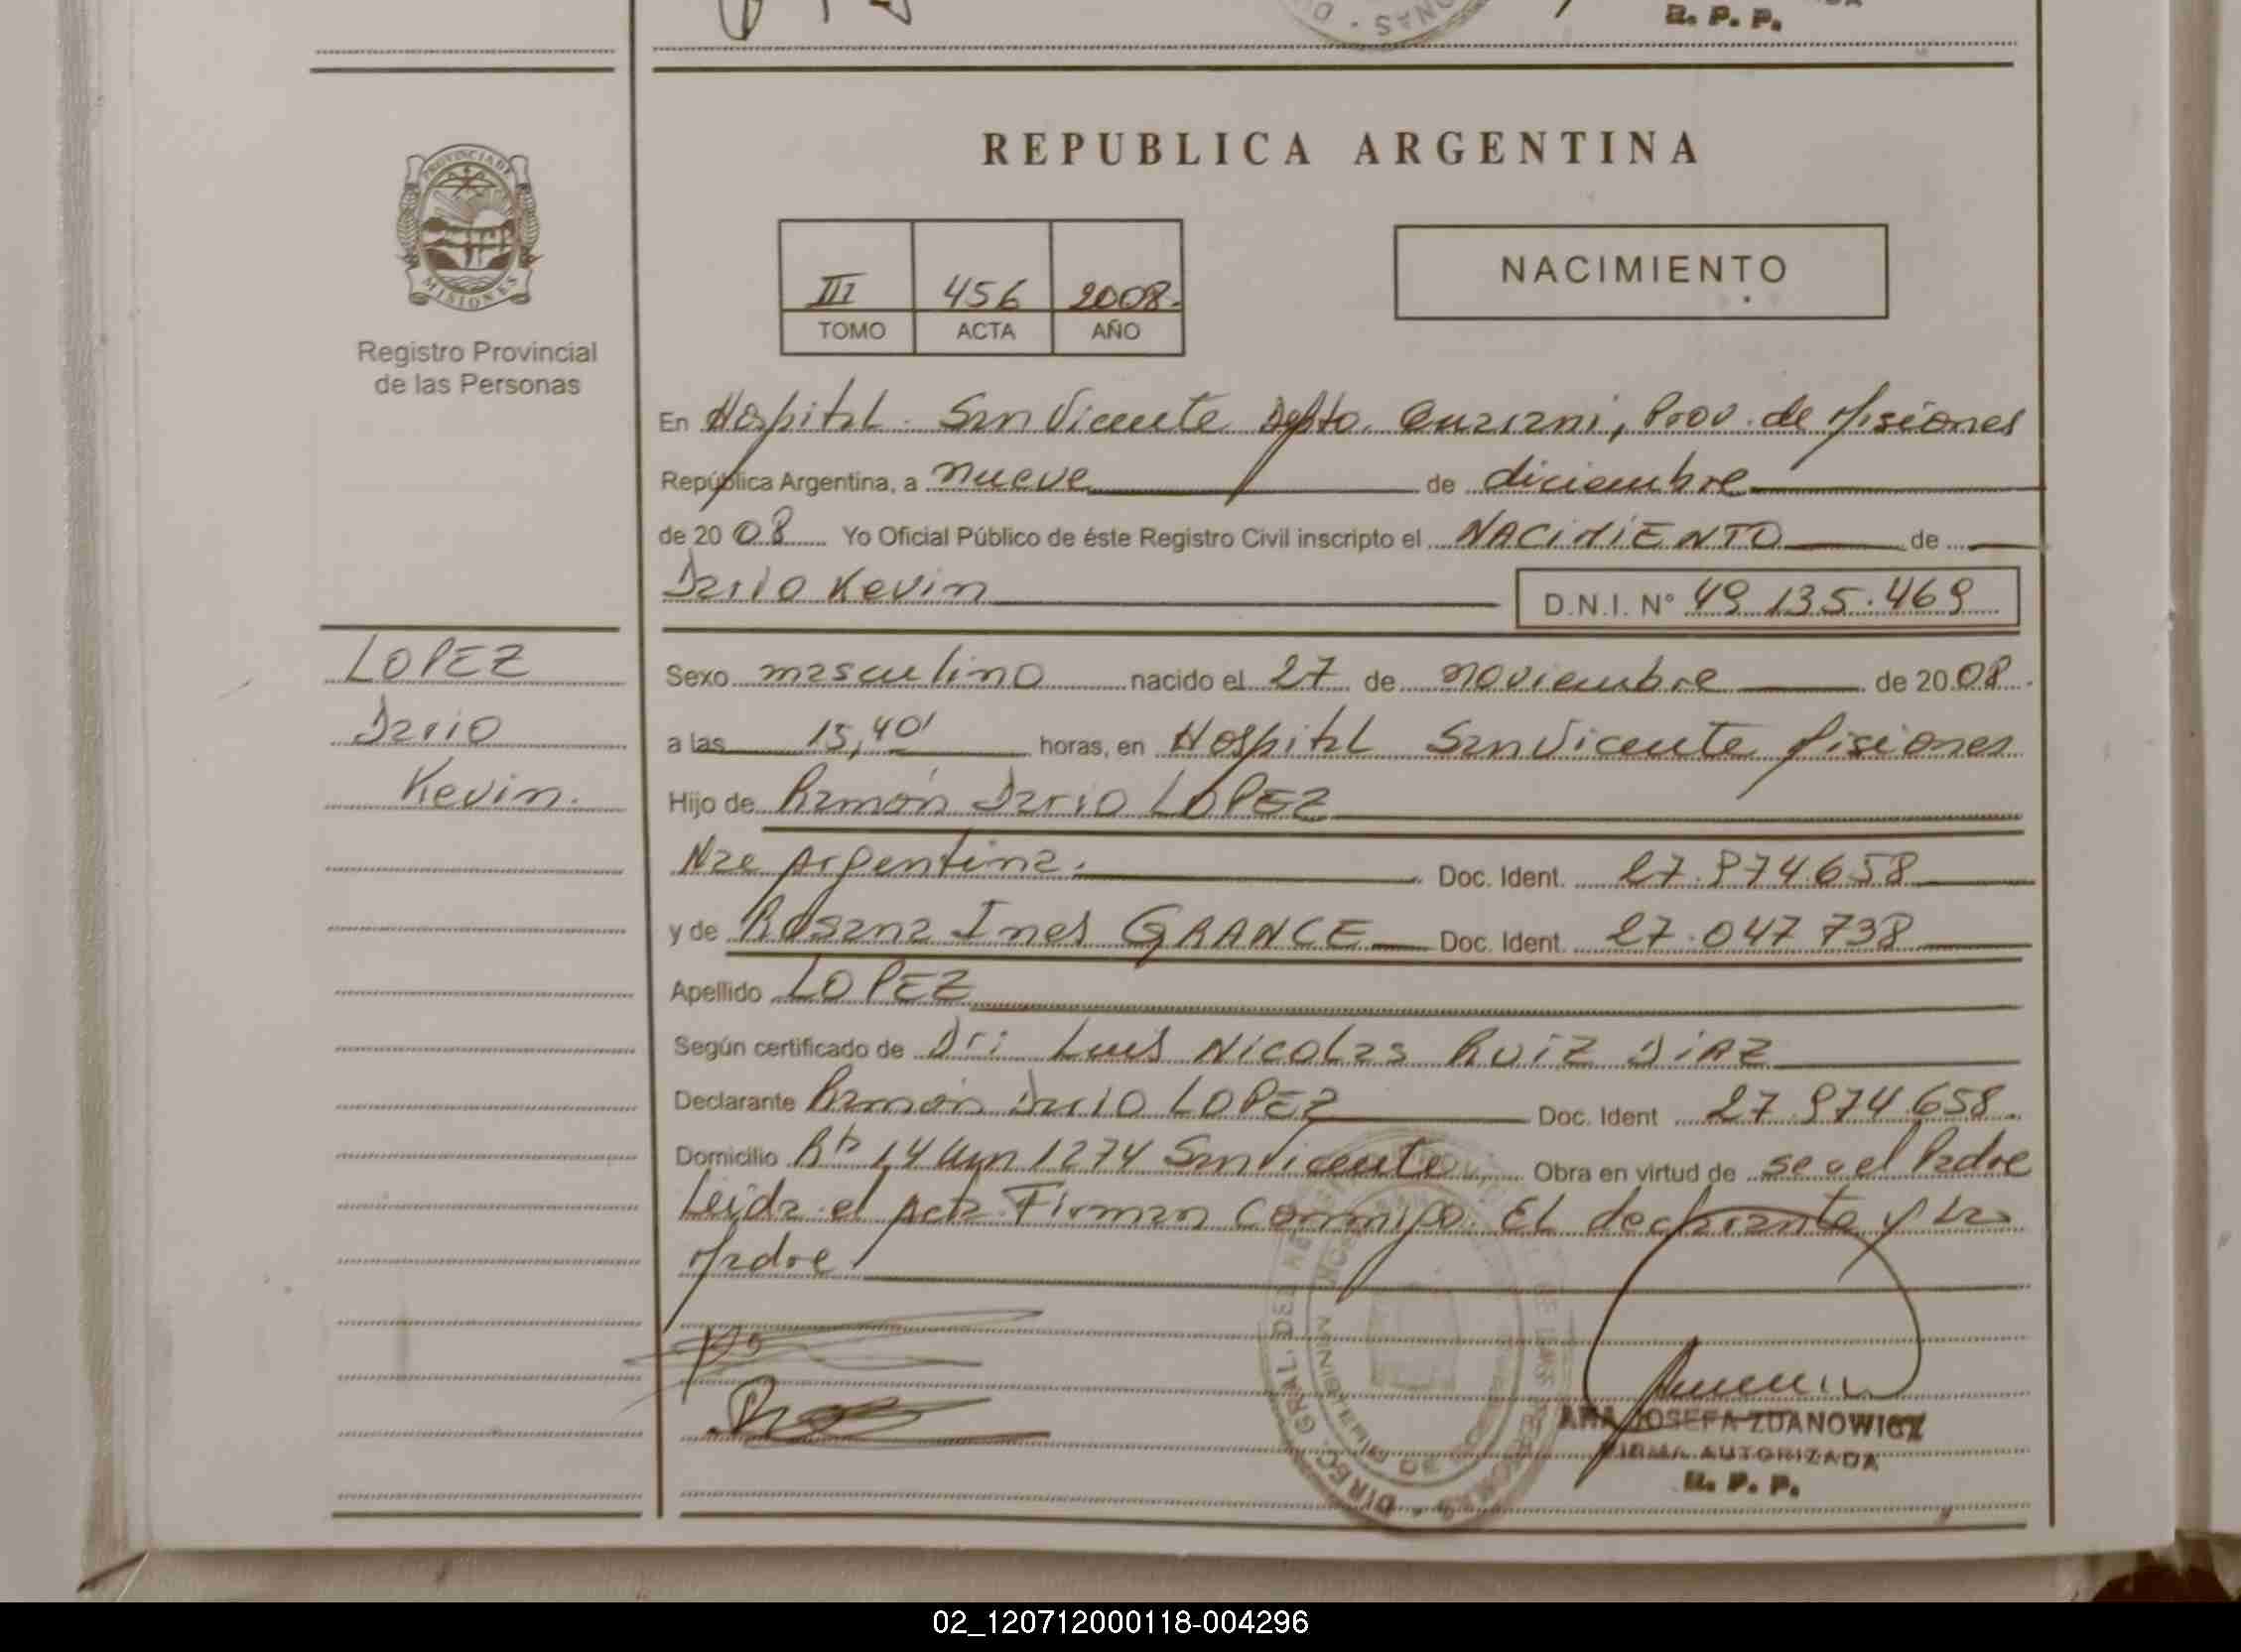 R. P. P.
REPUBLICA ARGENTINA
PROVINCIA DE
MISIONES
Registro Provincial
de las Personas
III 456 2008.
TOMO ACTA AÑO
NACIMIENTO
En Hospital San Vicente Depto. Guarani, Prov. de Misiones
República Argentina, a nueve de diciembre
de 2008 Yo Oficial Público de éste Registro Civil inscripto el NACIMIENTO de
Dario Kevin D.N.I. N° 49.135.469
LOPEZ
Dario
Kevin.
Sexo masculino nacido el 27 de noviembre de 2008.
a las 15,40' horas, en Hospital San Vicente Misiones
Hijo de Ramón Dario LOPEZ
Nac Argentina. Doc. Ident. 27.974.658
y de Rosana Ines GRANCE Doc. Ident. 27.047.738
Apellido LOPEZ
Según certificado de Dr: Luis Nicolas RUIZ DIAZ
Declarante Ramón Dario LOPEZ Doc. Ident 27.974.658.
Domicilio Rta 14 Km 1274 San Vicente Obra en virtud de ser el Padre
Leida el Acta Firman Conmigo. El declarante y La
Madre
ANA JOSEFA ZDANOWICZ
FIRMA AUTORIZADA
R. P. P.
02_120712000118-004296